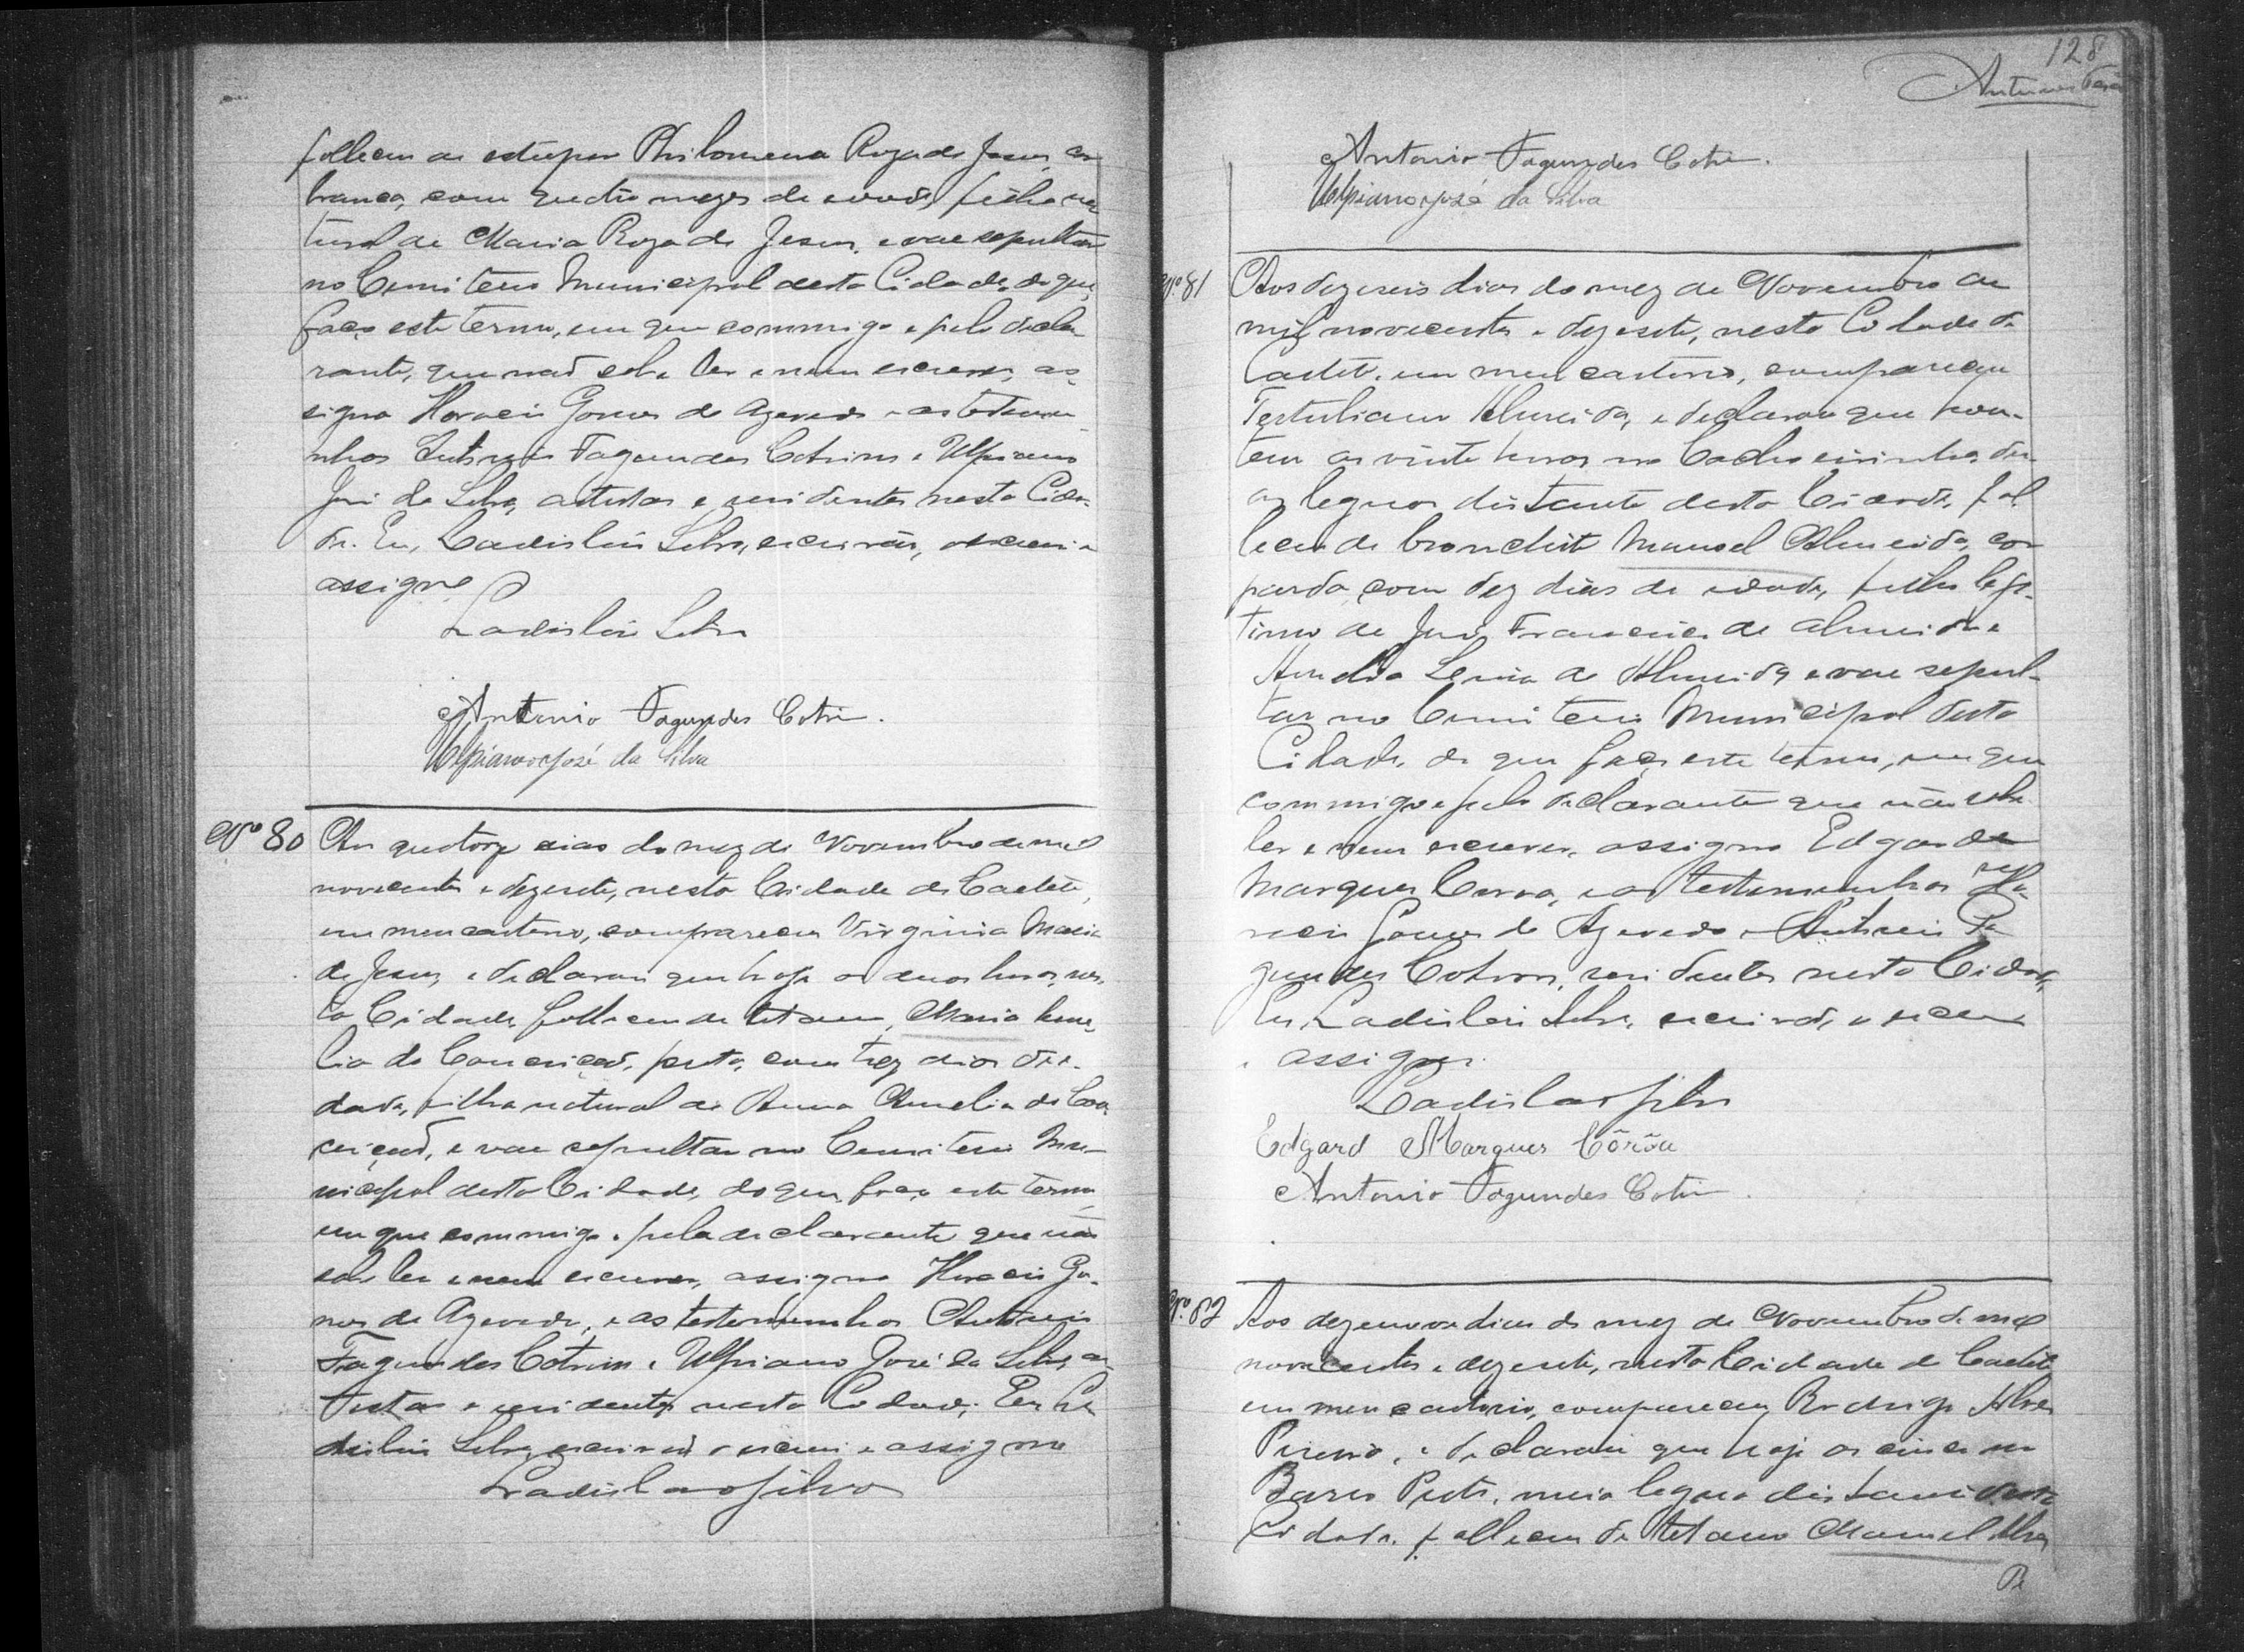 falleceu de estupor Philomena Roza de Jesus, cor
branca, com quatro mezes de edade, filha na
tural de Maria Roza de Jesus, e vae sepultar
no Cemiterio Municipal desta Cidade, do que
faço este termo, em que commigo e pelo decla
rante, que não sabe ler e nem escrever, as
signa Horacio Gomes de Azevedo e as testemu
nhas Antonio Fagundes Cotrim e Ulpiano
José da Silva, artistas e residentes nesta Cida
de. Eu, Ladislau Silva, escrivão, o escrevi e
assigno
Ladislau Silva
Antonio Fagundes Cotrim.
Ulpiano José da Silva
Nº 80 Aos quatorze dias do mez de Novembro de mil
novecentos e dezesete, nesta Cidade de Caeteté,
em meu cartorio, compareceu Virginia Maria
de Jesus, e declarou que hoje as duas horas, nes
ta Cidade, falleceu de tetano, Maria Ame
lia da Conceição, preta, com trez dias de e
dade, filha natural de Anna Amelia da Con
ceição, e vae sepultar no Cemiterio Mu
nicipal desta Cidade, do que faço este termo,
em que commigo e pela declarante que não
sabe ler e nem escrever, assigna Horacio Go
mes de Azevedo, e as testemunhas Antonio
Fagundes Cotrim e Ulpiano José da Silva, ar
tistas e residentes nesta Cidade. Eu La
dislau Silva, escrivão o escrevi e assigno
Ladislao Silva
128
Antonio Fagundes Cotrim.
Ulpiano José da Silva
Nº 81 Aos dezeseis dias do mez de Novembro de
mil novecentos e dezesete, nesta Cidade de
Caeteté, em meu cartorio, compareceu
Tertuliano Almeida, e declarou que hon
tem as vinte horas no Cachoeirinha, du
as leguas distante desta Cidade, fal
leceu de bronchite Manoel Almeida, cor
parda, com dez dias de edade, filho legi
timo de José Francisco de Almeida e
Amelia de Almeida, e vae sepul
tar no Cemiterio Municipal desta
Cidade, do que faço este termo, em que
commigo e pelo declarante que não sabe
ler e nem escrever, assigna Edgard
Marques Coroa, e as testemunhas Ho
racio Gomes de Azevedo e Antonio Fa
gundes Cotrim, residentes nesta Cidade,
Eu, Ladislau Silva, escrivão, o escrevi
e assigno.
Ladislao Silva
Edgard Marques Côrôa
Antonio Fagundes Cotrim.
Nº 82 Aos dezenove dias do mez de Novembro de mil
novecentos e dezesete, nesta Cidade de Caeteté
em meu cartorio, compareceu Rodrigo Alves
e declarou que hoje as cinco no
Barro Preto, meia legua distante desta
Cidade, falleceu de tetano Manoel Alves